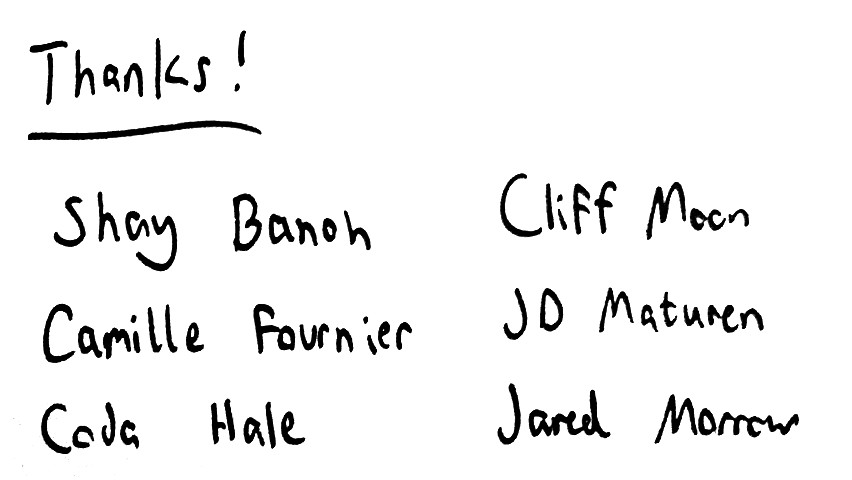 Thanks!
Shay Banon
Camille Fournier
Coda Hale
Cliff Moon
JD Maturen
Jared Morrow